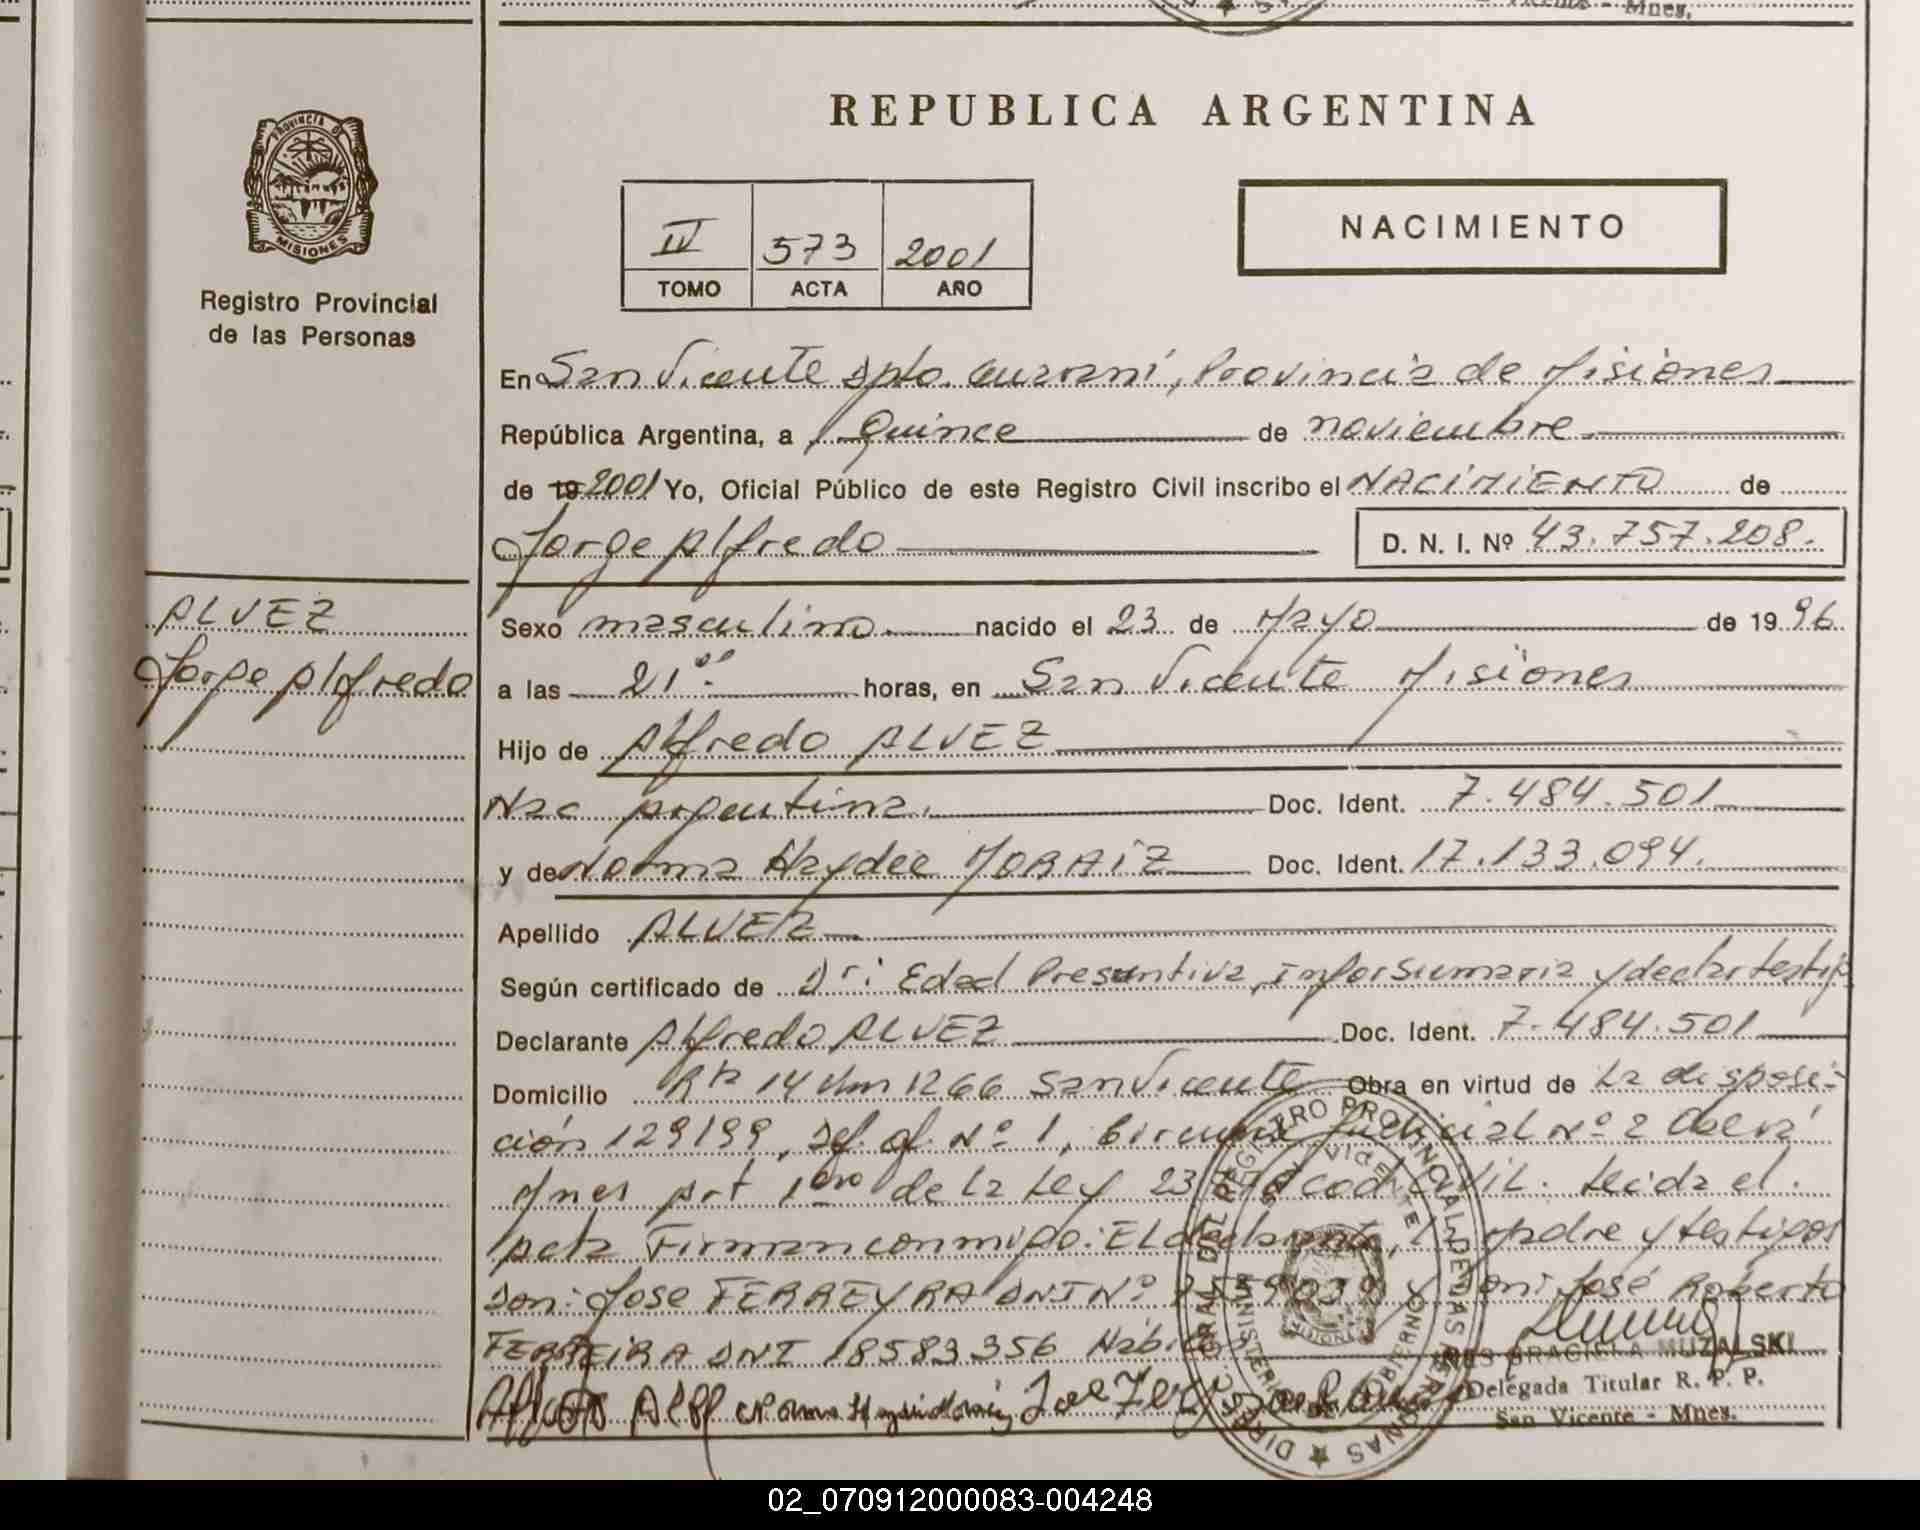 Vicente - Mnes.
PROVINCIA DE
MISIONES
Registro Provincial
de las Personas
ALVEZ
Jorge Alfredo
REPUBLICA ARGENTINA
IV 573 2001
TOMO ACTA AÑO
NACIMIENTO
En San Vicente Dpto. Guaraní, Provincia de Misiones
República Argentina, a Quince de noviembre
de 19 2001 Yo, Oficial Público de este Registro Civil inscribo el NACIMIENTO de
Jorge Alfredo D. N. I. Nº 43.757.208.
Sexo masculino nacido el 23 de Mayo de 1996
a las 21 horas, en San Vicente Misiones
Hijo de Alfredo ALVEZ
Nac Argentina. Doc. Ident. 7.484.501
y de Norma Haydee MORAIZ Doc. Ident. 17.133.094.
Apellido ALVEZ
Según certificado de Edad Presuntiva, Infor Sumaria y declar testigs
Declarante Alfredo ALVEZ Doc. Ident. 7.484.501
Domicilio Rta 14 Km 1266 San Vicente Obra en virtud de La disposi-
ción 129/99, Nº 1, Judicial Nº 2 Oberá
Mnes Art 1ero de La Ley Cod Civil. Leida el
Acta Firman conmigo: El declarante, madre y testigos
Don: Jose FERREYRA DNI Nº y Don: José Roberto
FERREIRA DNI 18583356
INES GRACIELA MUZALSKI
Delegada Titular R. P. P.
San Vicente - Mnes.
DIRECC. GRAL. DEL REGISTRO PROVINCIAL DE LAS PERSONAS
SAN VICENTE
MINISTERIO DE GOBIERNO
MISIONES
02_070912000083-004248